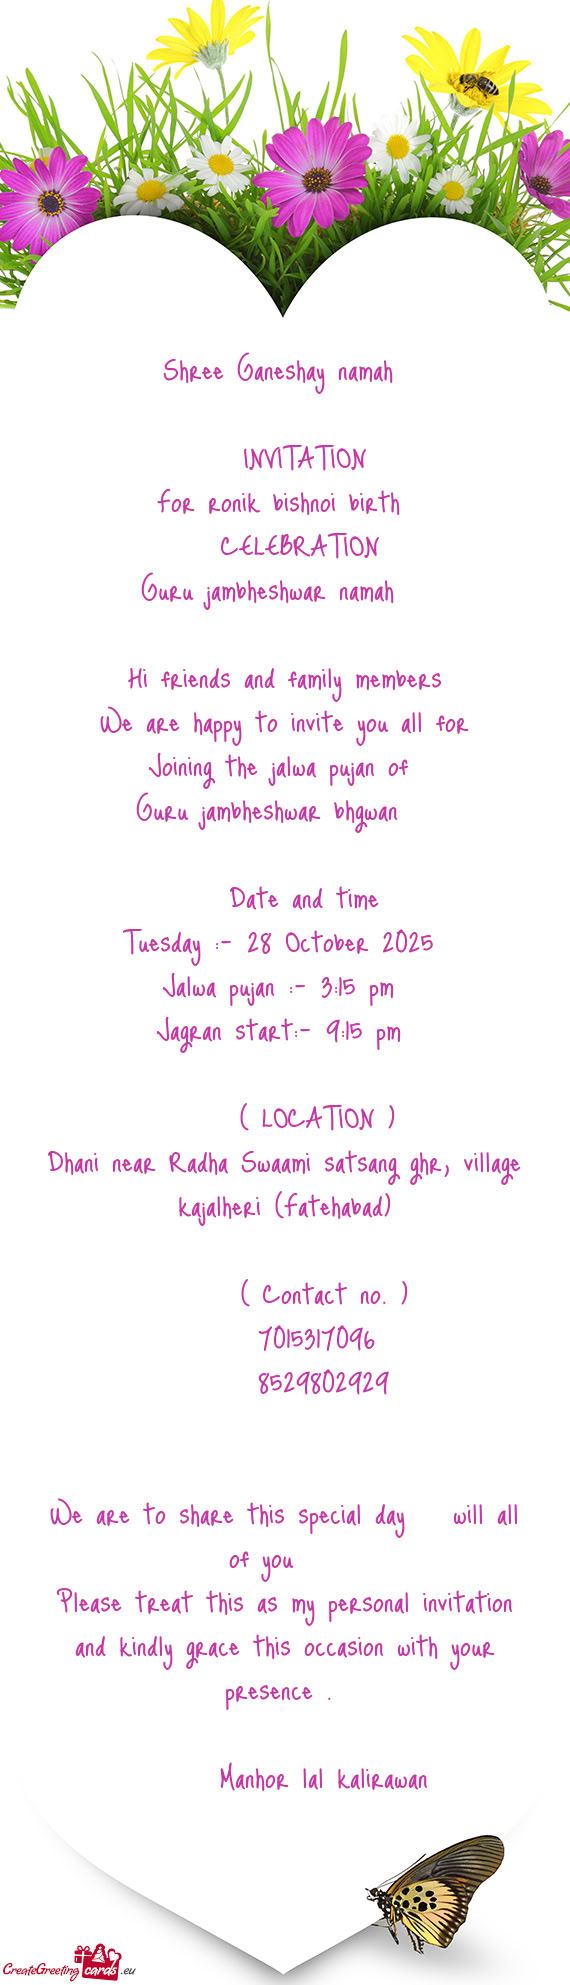 Shree Ganeshay namah
INVITATION
For ronik bishnoi birth
CELEBRATION
Guru jambheshwar namah
Hi friends and family members
We are happy to invite you all for
Joining the jalwa pujan of
Guru jambheshwar bhgwan
Date and time
Tuesday :- 28 October 2025
Jalwa pujan :- 3:15 pm
Jagran start:- 9:15 pm
( LOCATION )
Dhani near Radha Swaami satsang ghr, village
kajalheri (Fatehabad)
( Contact no. )
7015317096
8529802929
We are to share this special day will all
of you
Please treat this as my personal invitation
and kindly grace this occasion with your
presence .
Manhor lal kalirawan
CreateGreetingcards.eu